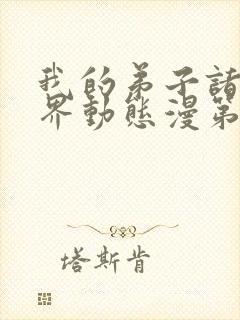 我的弟子諸
界動態漫第
塔斯肯